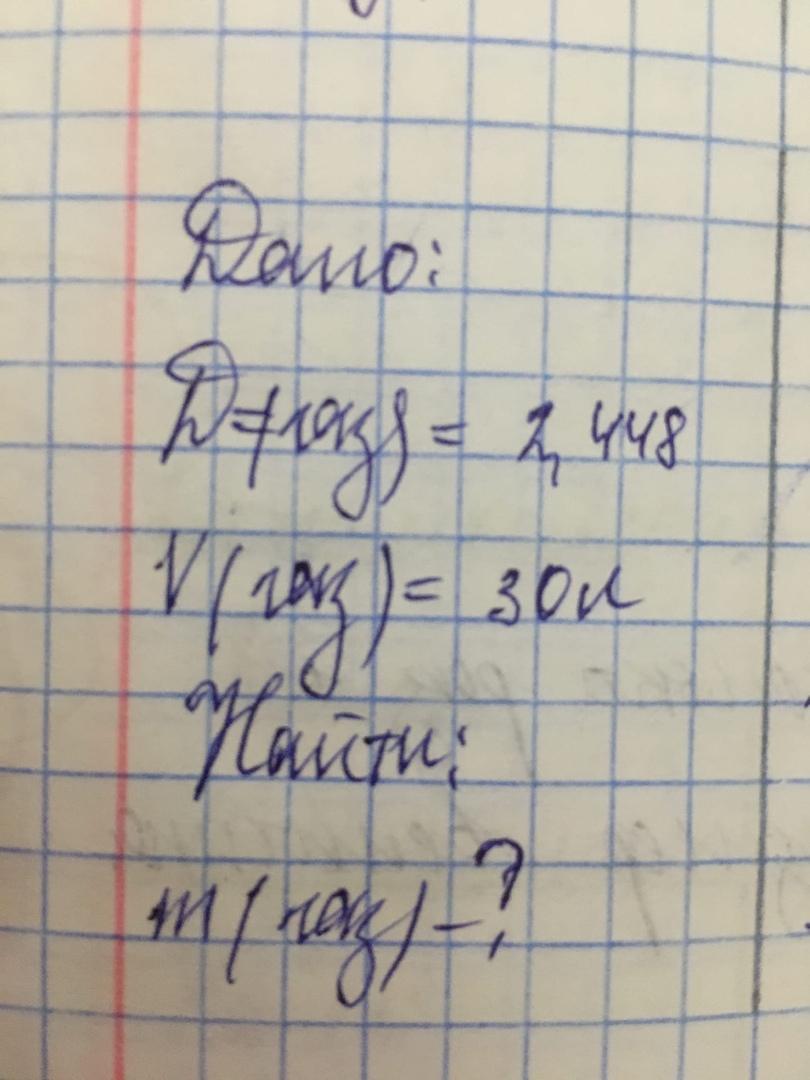 Дано:
D=(газ) = 2,448
V(газ) = 30л
Найти:
m(газ) - ?